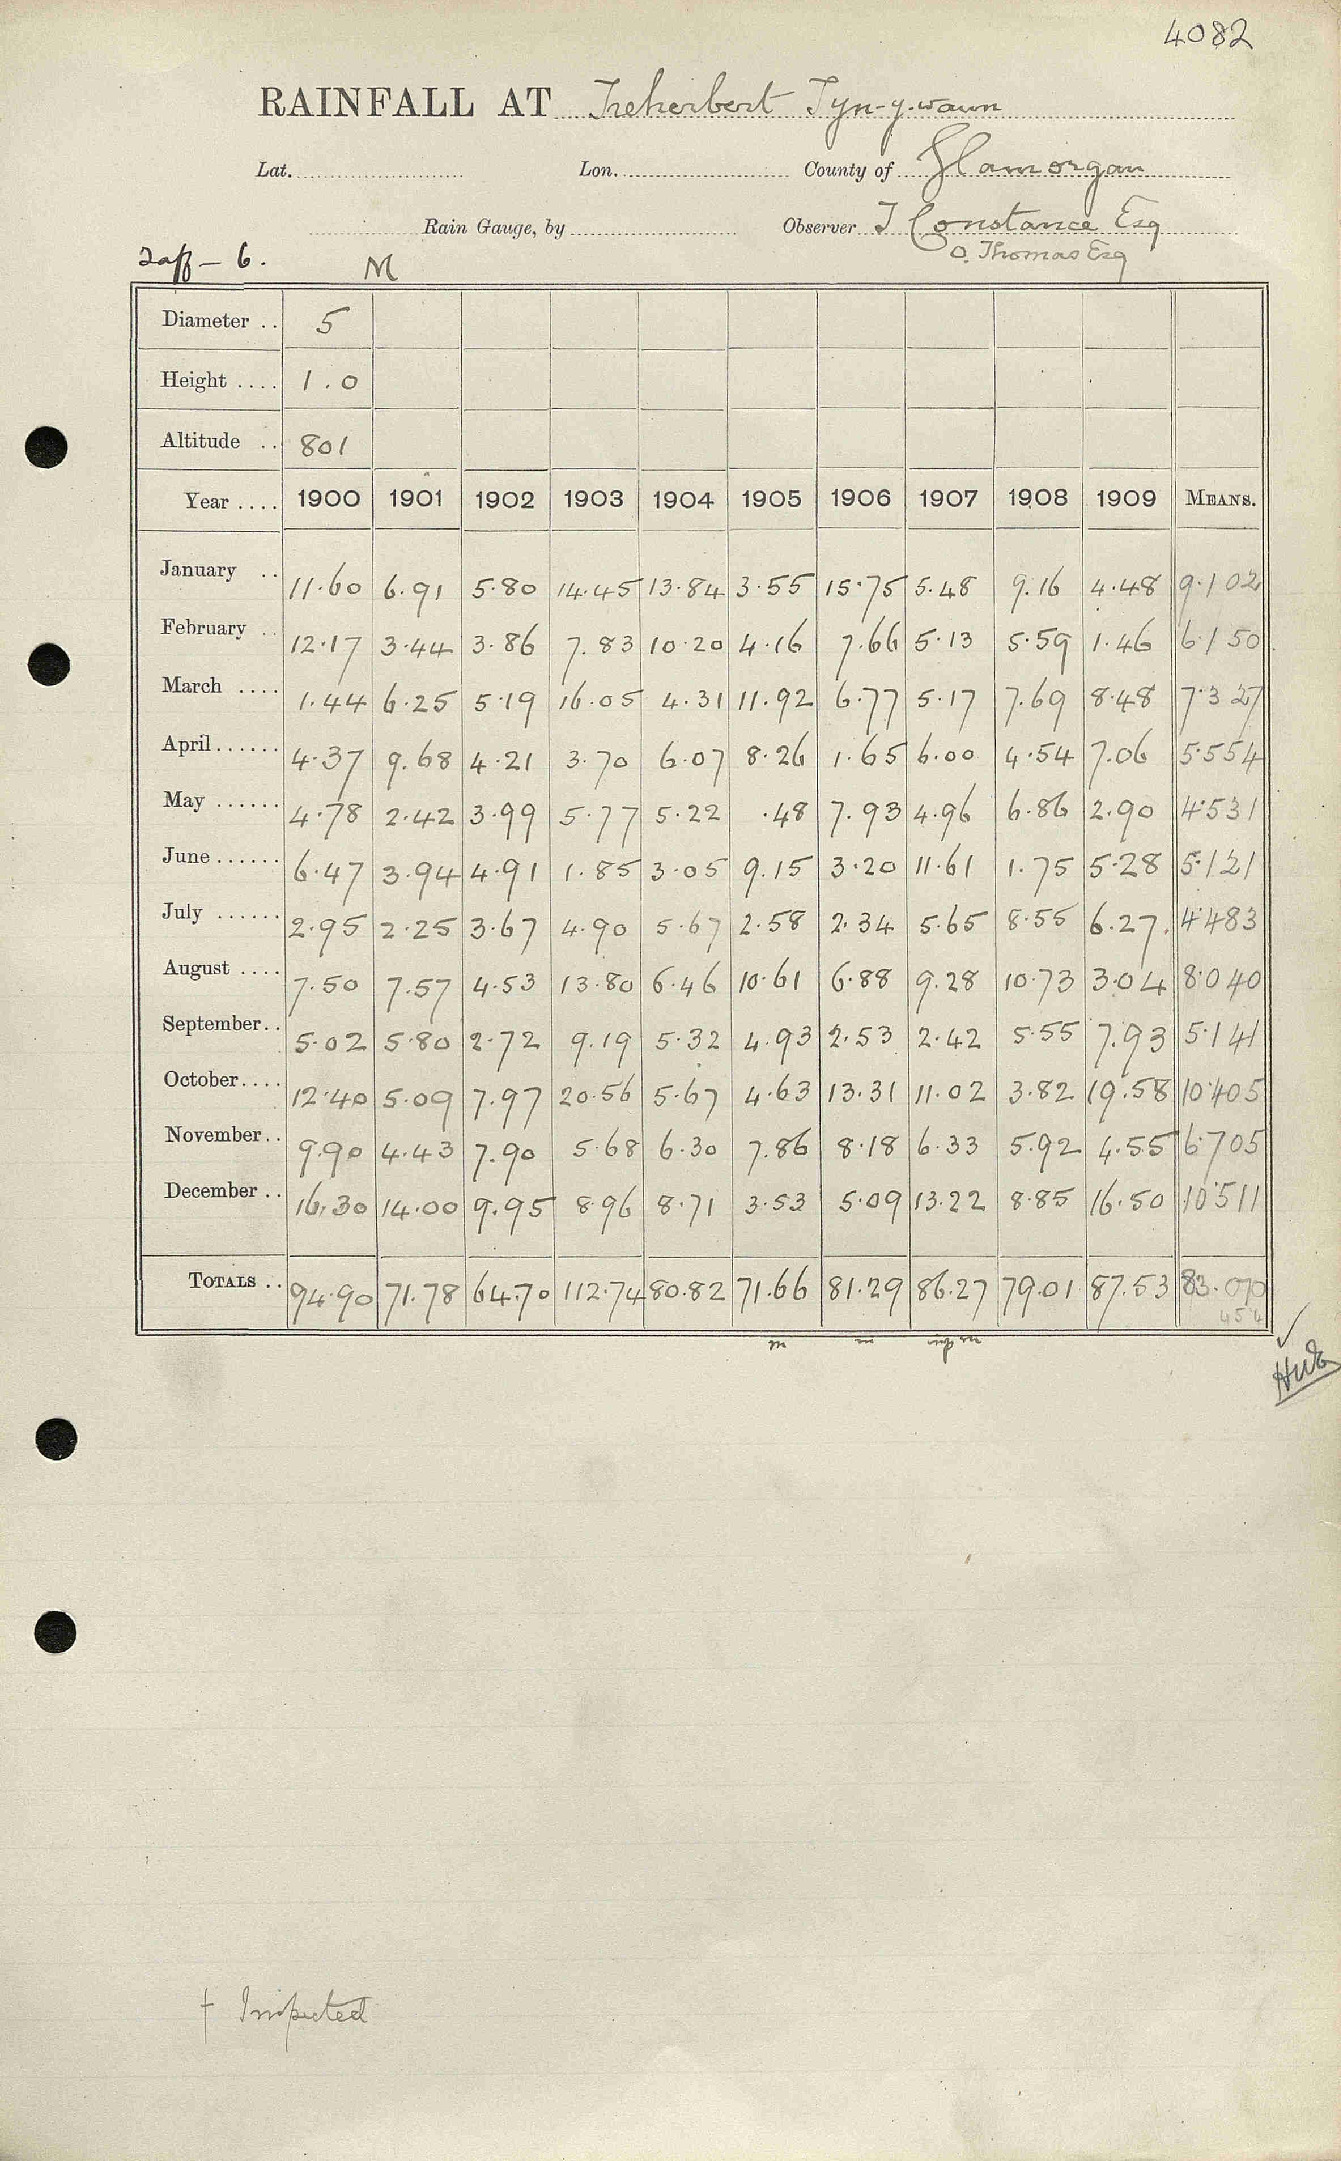 4082
RAINFALL AT Treherbert Tyn-y-waun
Lat. Lon. County of Glamorgan
Rain Gauge, by Observer J Constance Esq
Taff - 6. M O. Thomas Esq
Diameter .. 5
Height .... 1.0
Altitude .. 801
Year .... 1900 1901 1902 1903 1904 1905 1906 1907 1908 1909 MEANS.
January .. 11.60 6.91 5.80 14.45 13.84 3.55 15.75 5.48 9.16 4.48 9.102
February .. 12.17 3.44 3.86 7.83 10.20 4.16 7.66 5.13 5.59 1.46 6.150
March .... 1.44 6.25 5.19 16.05 4.31 11.92 6.77 5.17 7.69 8.48 7.327
April...... 4.37 9.68 4.21 3.70 6.07 8.26 1.65 6.00 4.54 7.06 5.554
May ...... 4.78 2.42 3.99 5.77 5.22 .48 7.93 4.96 6.86 2.90 4.531
June...... 6.47 3.94 4.91 1.85 3.05 9.15 3.20 11.61 1.75 5.28 5.121
July ...... 2.95 2.25 3.67 4.90 5.67 2.58 2.34 5.65 8.55 6.27. 4.483
August .... 7.50 7.57 4.53 13.80 6.46 10.61 6.88 9.28 10.73 3.04 8.040
September.. 5.02 5.80 2.72 9.19 5.32 4.93 2.53 2.42 5.55 7.93 5.141
October.... 12.40 5.09 7.97 20.56 5.67 4.63 13.31 11.02 3.82 19.58 10.405
November.. 9.90 4.43 7.90 5.68 6.30 7.86 8.18 6.33 5.92 4.55 6.705
December .. 16.30 14.00 9.95 8.96 8.71 3.53 5.09 13.22 8.85 16.50 10.511
TOTALS .. 94.90 71.78 64.70 112.74 80.82 71.66 81.29 86.27 79.01 87.53 83.070
454
m m m
† Inspected